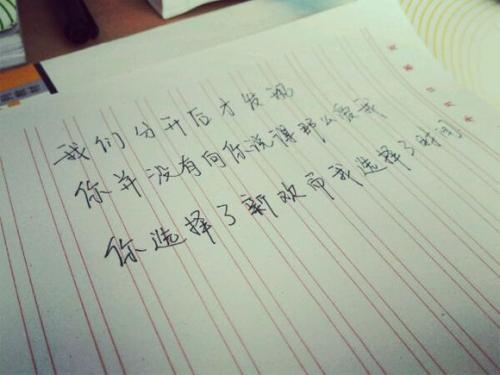 我们分开后才发现
你并没有向你说得那么爱我
你选择了新欢而我选择了时间